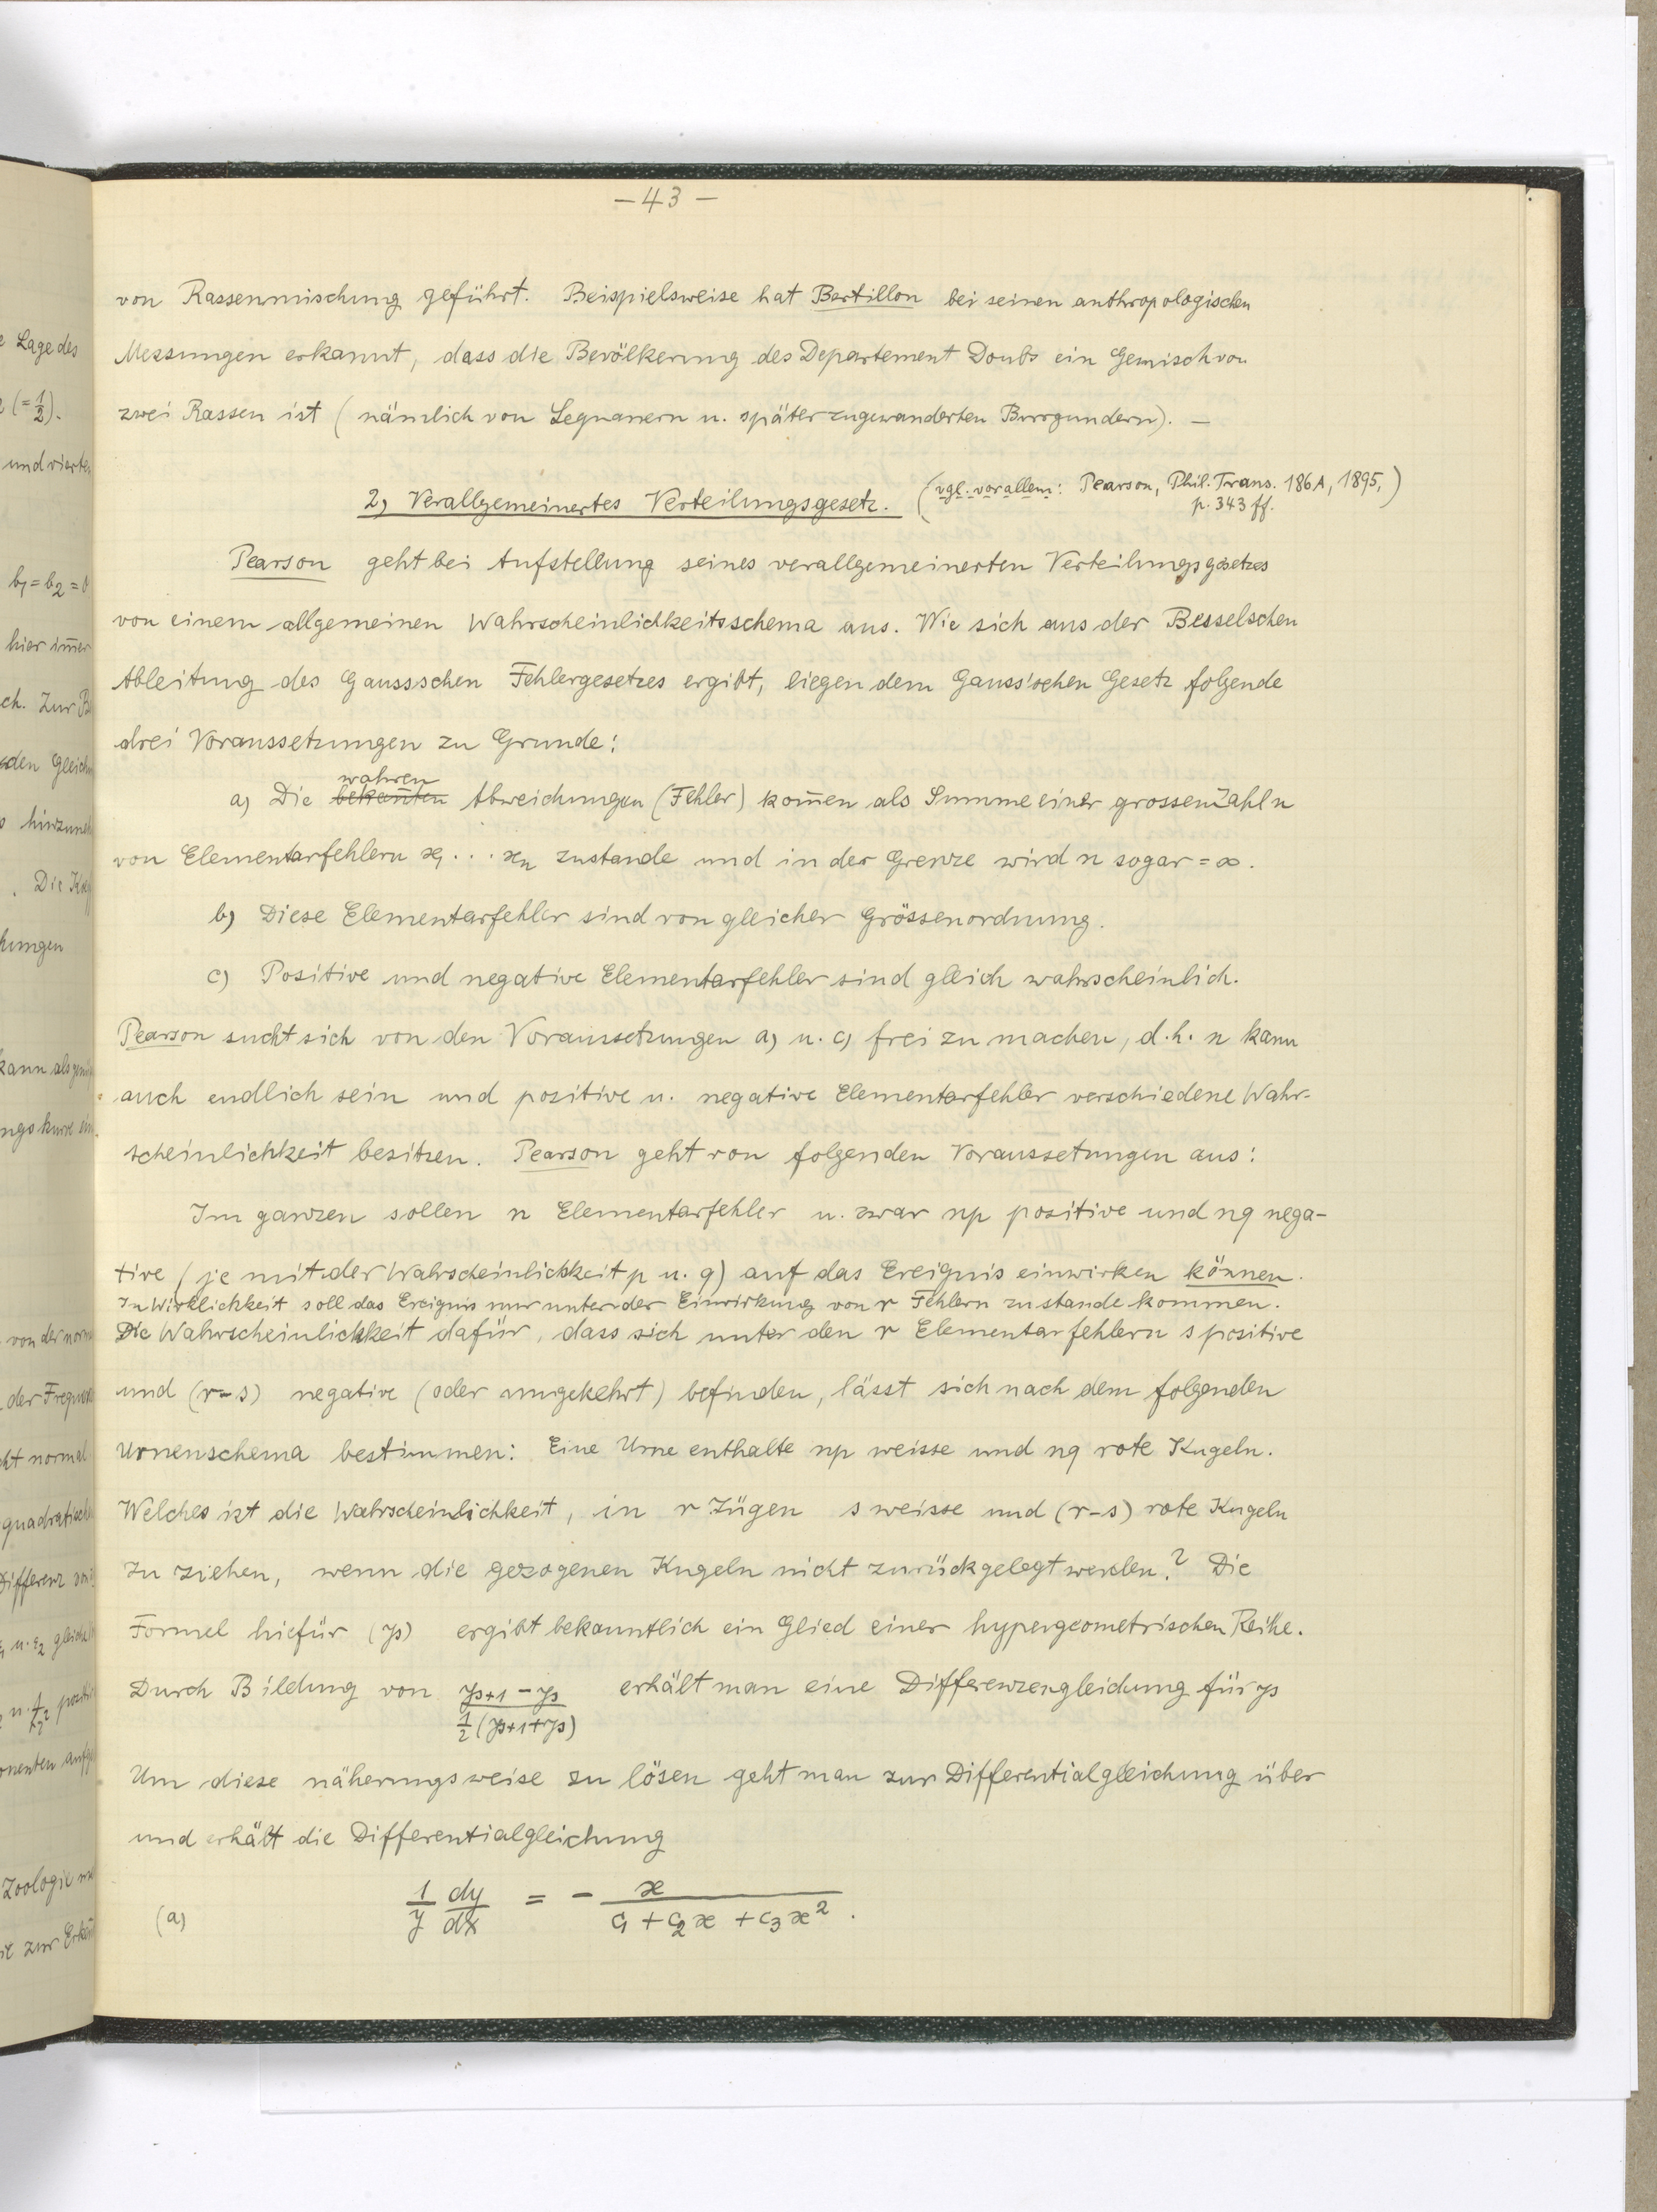 — 43 —
von Rassenmischung geführt. Beispielsweise hat Bertillon bei seinen anthropologischen
Messungen erkannt, dass die Bevölkerung des Departement Doubs ein Gemisch von
zwei Rassen ist (nämlich von Sequanern u. später zugewanderten Burgundern). —
2) Verallgemeinertes Verteilungsgesetz. (vgl. vor allem: Pearson, Phil. Trans. 186A, 1895, p. 343 ff.)
Pearson geht bei Aufstellung seines verallgemeinerten Verteilungsgesetzes
von einem allgemeinen Wahrscheinlichkeitsschema aus. Wie sich aus der Besselschen
Ableitung des Gaussschen Fehlergesetzes ergibt, liegen dem Gauss'schen Gesetz folgende
drei Voraussetzungen zu Grunde:
wahren
a) Die bekan̄ten Abweichungen (Fehler) kom̄en als Summe einer grossen Zahl n
von Elementarfehlern x₁ . . . xₙ zustande und in der Grenze wird n sogar = ∞.
b) Diese Elementarfehler sind von gleicher Grössenordnung.
c) Positive und negative Elementarfehler sind gleich wahrscheinlich.
Pearson sucht sich von den Voraussetzungen a) u. c) frei zu machen, d.h. n kann
auch endlich sein und positive u. negative Elementarfehler verschiedene Wahr-
scheinlichkeit besitzen. Pearson geht von folgenden Voraussetungen aus:
Im ganzen sollen n Elementarfehler u. zwar np positive und nq nega-
tive (je mit der Wahrscheinlichkeit p u. q) auf das Ereignis einwirken können.
In Wirklichkeit soll das Ereignis nur unter der Einwirkung von r Fehlern zustande kommen.
Die Wahrscheinlichkeit dafür, dass sich unter den r Elementarfehlern s positive
und (r-s) negative (oder umgekehrt) befinden, lässt sich nach dem folgenden
Urnenschema bestimmen: Eine Urne enthalte np weisse und nq rote Kugeln.
Welches ist die Wahrscheinlichkeit, in r Zügen s weisse und (r-s) rote Kugeln
zu ziehen, wenn die gezogenen Kugeln nicht zurückgelegt werden? Die
Formel hiefür (yₛ) ergibt bekanntlich ein Glied einer hypergeometrischen Reihe.
Durch Bildung von (yₛ₊₁ − yₛ) / ½(yₛ₊₁ + yₛ) erhält man eine Differenzengleichung für yₛ
Um diese näherungsweise zu lösen geht man zur Differentialgleichung über
und erhält die Differentialgleichung
(a) 1/y dy/dx = − x / (c₁ + c₂x + c₃x²) .
e Lage des
(= 1/2).
und vierte
b₁ = b₂ = 0
hier im̄er
ch. Zur
den Gleich
. Die
hungen
kann als
ngskurve
von der norm
der Freque
cht normal
quadratisch
Differenz
u. ε₂ gleich
Zoologie
zur